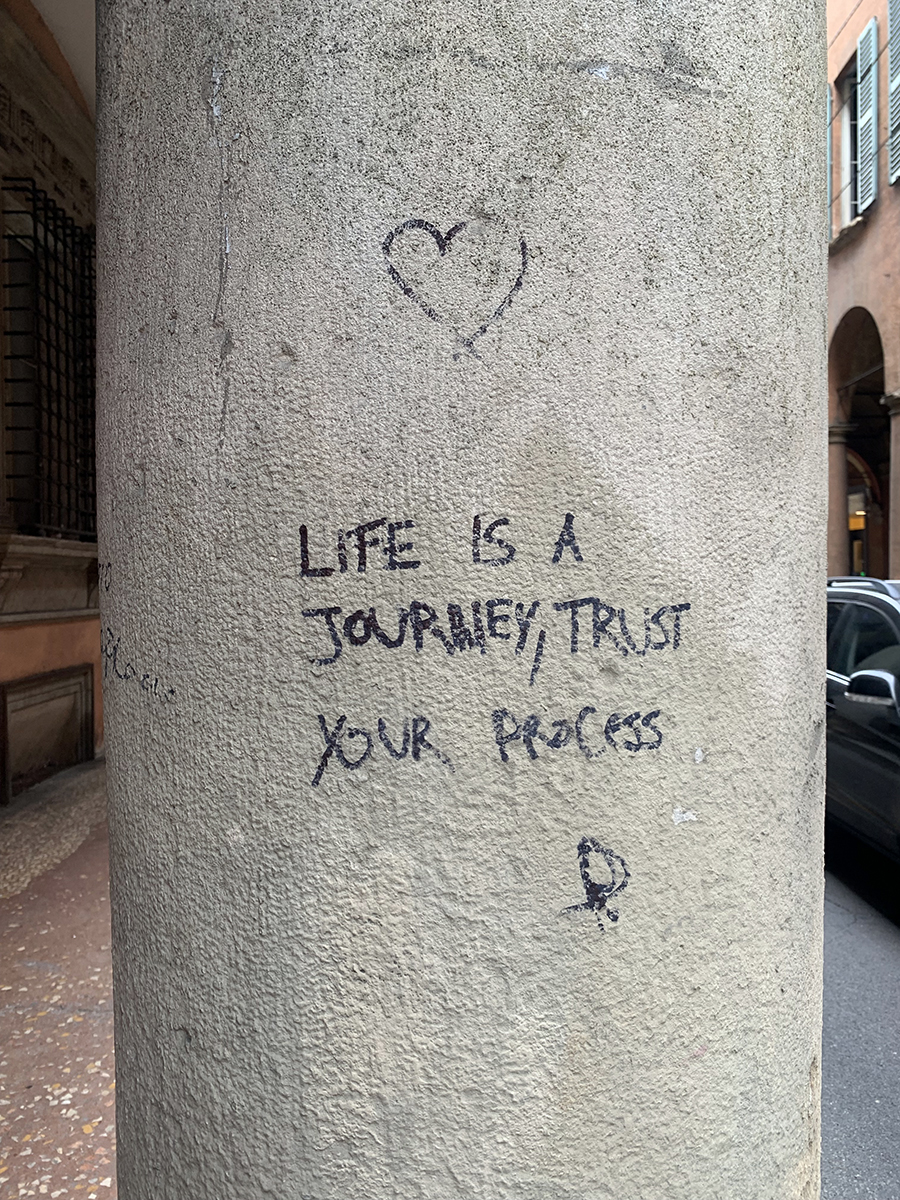 LIFE IS A
JOURNEY, TRUST
YOUR PROCESS
D.